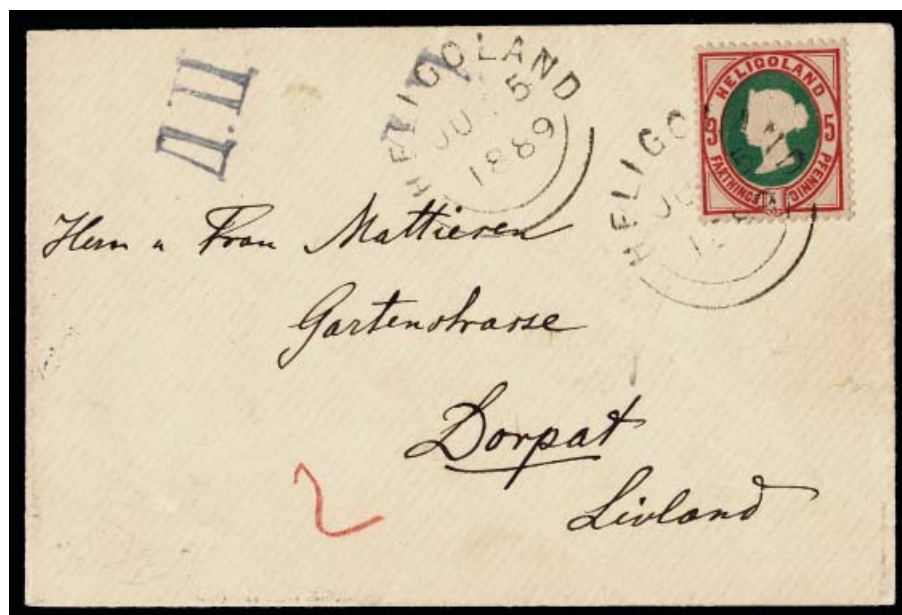 Д.Ц
HELIGOLAND
JU 5
1889
HELIGOLAND
5 5
FARTHINGS PFENNIG
HELIGO
Herrn u Frau Mattiesen
Gartenstrasse
Dorpat
Livland
2